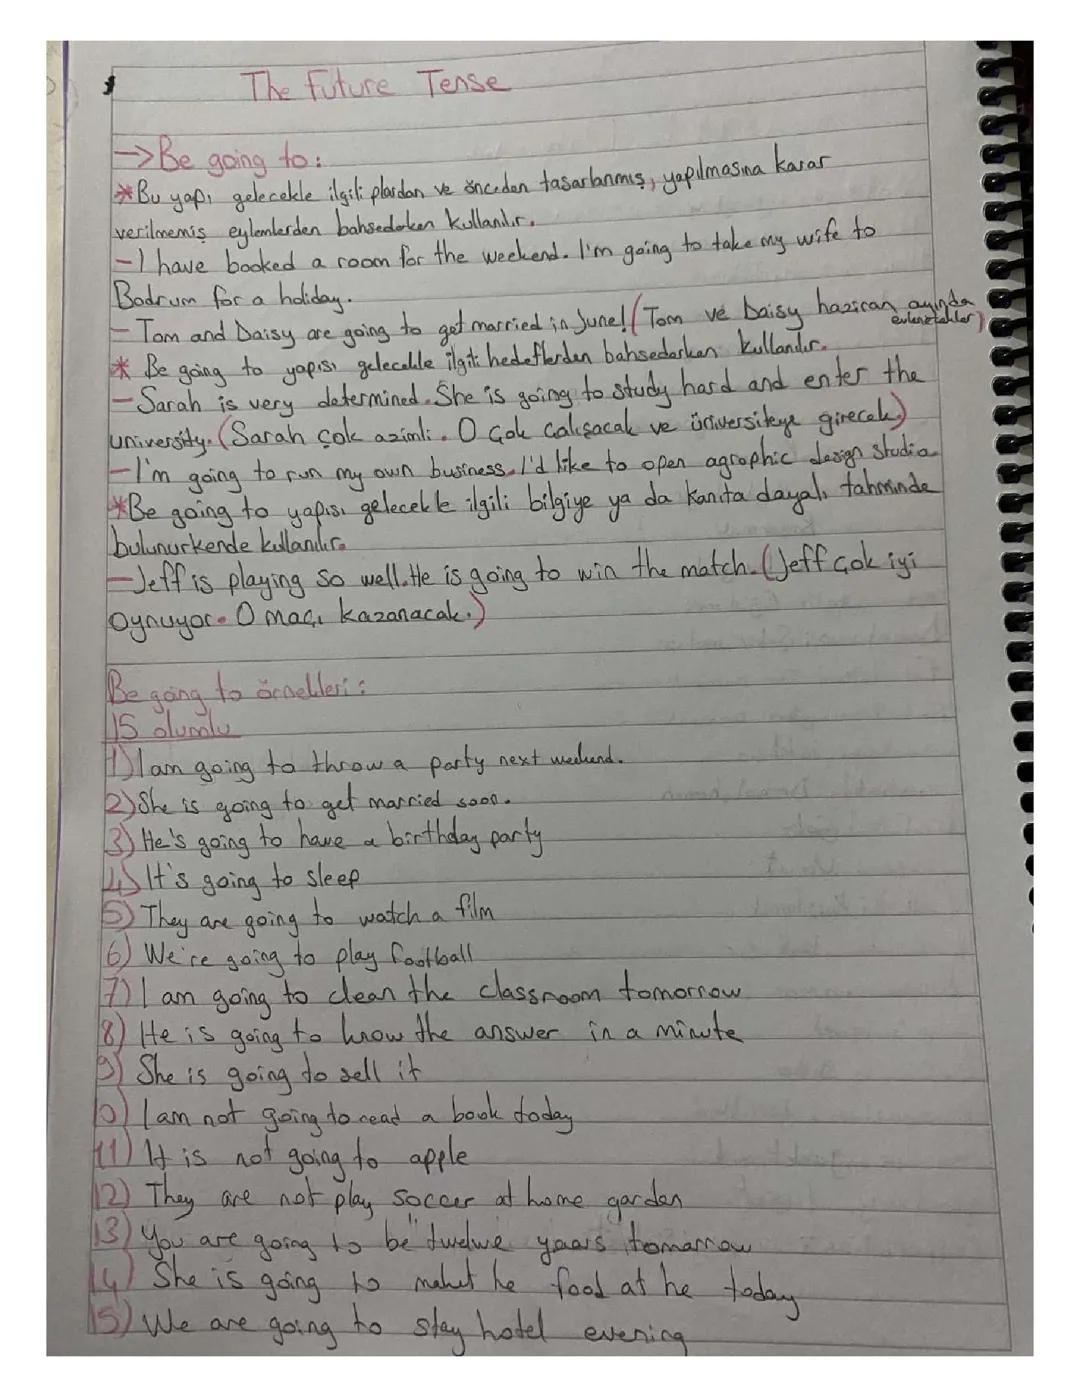 The Future Tense
→Be going to:
*Bu yapı gelecekle ilgili planlardan ve önceden tasarlanmış, yapılmasına karar
verilmemiş eylemlerden bahsederken kullanılır.
-I have booked a room for the weekend. I'm going to take my wife to
Bodrum for a holiday.
- Tom and Daisy are going to get married in June! (Tom ve Daisy haziran ayında
evlenecekler)
* Be going to yapısı gelecekle ilgili hedeflerden bahsedarken kullanılır.
-Sarah is very determined. She is going to study hard and enter the
university. (Sarah çok azimli. O Çok Calışacak ve üniversiteye girecek)
-I'm going to run my own business. I'd like to open agraphic design studio.
*Be going to yapısı gelecekle ilgili bilgiye ya da kanıta dayalı tahminde
bulunurkende kullanılır.
-Jeff is playing so well. He is going to win the match. (Jeff çok iyi
oynuyor. O maçı kazanacak.)
Be going to örnekleri:
15 olumlu
1) I am going to throw a party next weekend.
2) She is going to get married soon.
3) He's going to have a birthday party
4) It's going to sleep
5) They are going to watch a film
6) We're going to play football
7) I am going to clean the classroom tomorrow
8) He is going to know the answer in a minute
9) She is going to sell it
10) I am not going to read a book today
11) It is not going to apple
12) They are not play soccer at home garden
13) You are going to be "twelwe years tomarrow
14) She is going to he food at he today
15) We are going to stay hotel evening